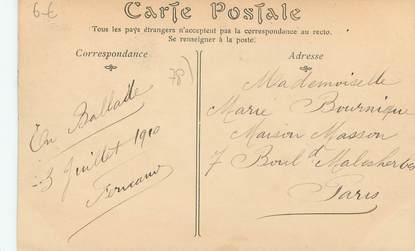 6-€
Carte Postale
Tous les pays étrangers n'acceptent pas la correspondance au recto.
Se renseigner à la poste.
Correspondance
Adresse
78)
En Ballade
3 Juillet 1910
Fernand
Mademoiselle
Marie Bournique
Maison Masson
7 Boul d Malesherbes
Paris